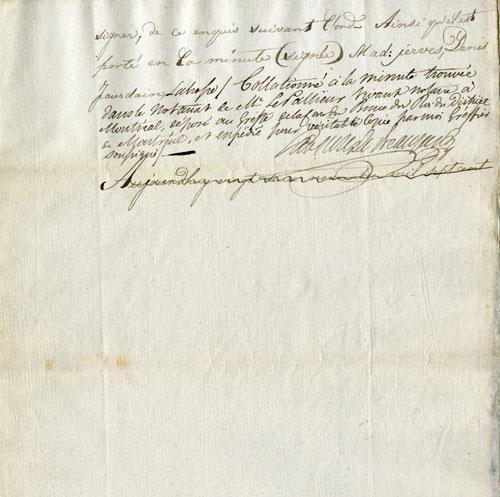 signer, de ce enquis suivant l'ordce Ainsi qu'il est
porté en La minute (signé) Mad: jerves, Denis
Jourdain Labrosse / Collationné à la minute trouvée
dans le Notariat de Me. LePallieur vivant notaire à
Montréal, déposé au Greffe de la Cour du Banc du Roi du District
de Montréal, et expédié pour véritable Copie par moi Greffier
soussigné /
Aujourdhuy vingt novembre mil sept cent